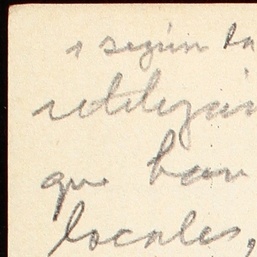 y según la
utilizán
que han
locales,